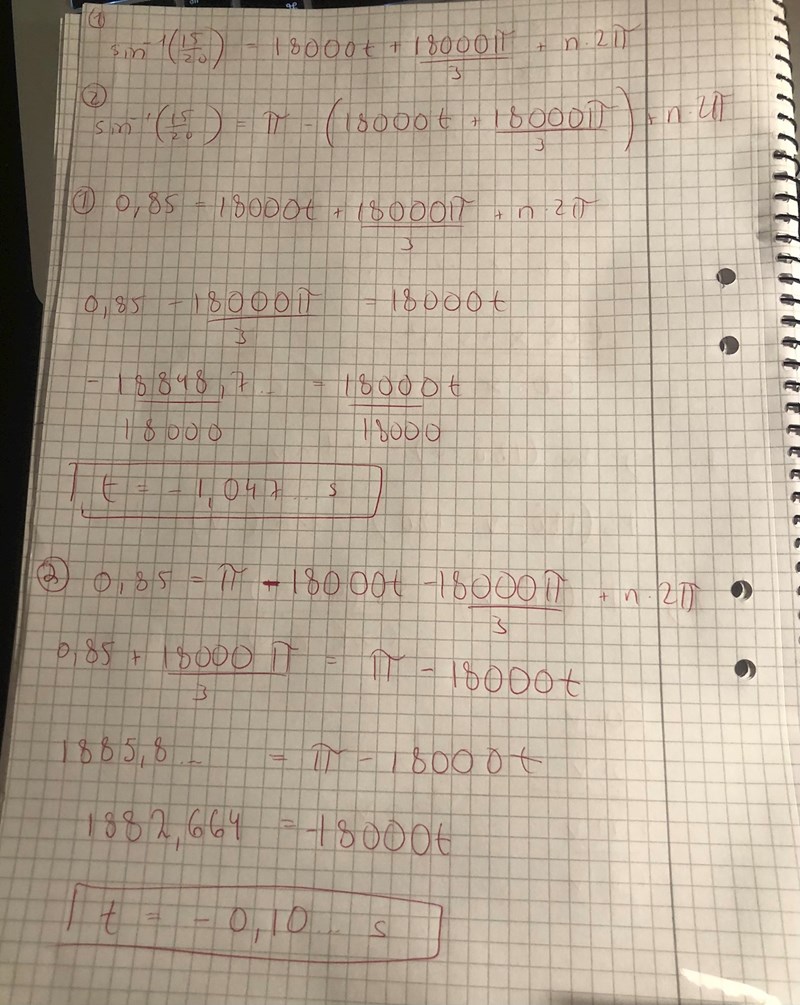 ①
sin⁻¹(15/20) = 18000t + 18000π/3 + n·2π
②
sin⁻¹(15/20) = π - (18000t + 18000π/3) + n·2π
① 0,85 = 18000t + 18000π/3 + n·2π
0,85 - 18000π/3 = 18000t
-18848,7.../18000 = 18000t/18000
t = -1,047... s
② 0,85 = π - 18000t - 18000π/3 + n·2π
0,85 + 18000π/3 = π - 18000t
1885,8... = π - 18000t
1882,664 = -18000t
t = -0,10... s